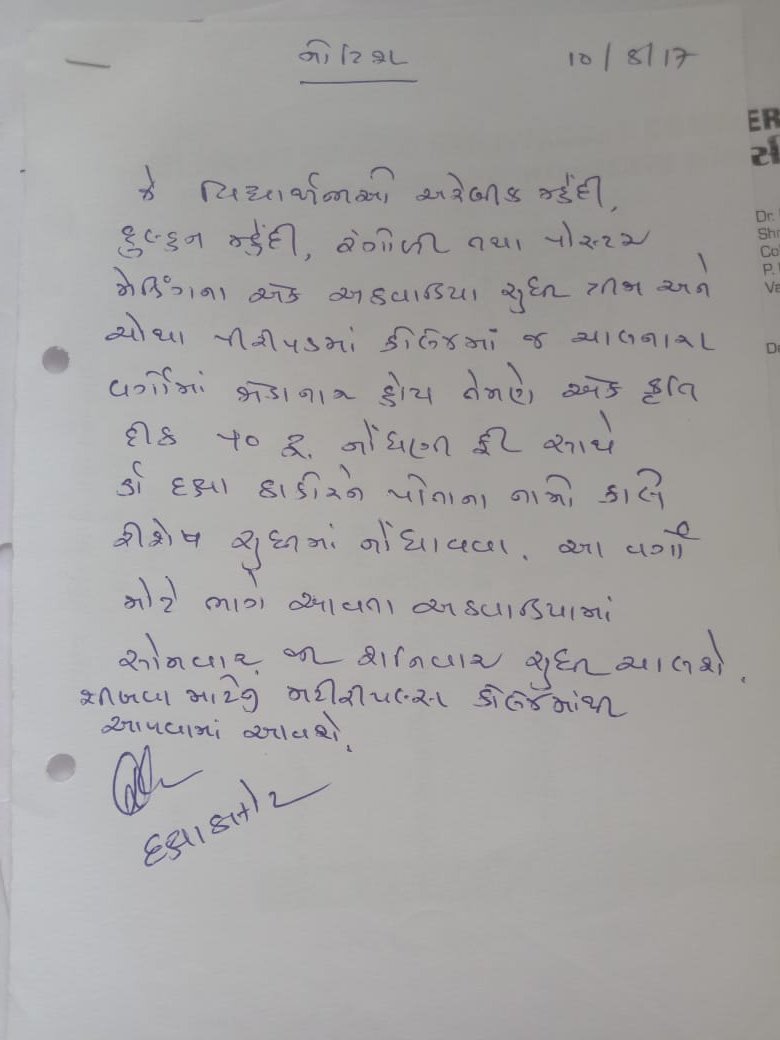 નોટિશ 10/8/17
જે વિદ્યાર્થીનીઓ અરેબીક મ્હેંદી,
દુલ્હન મ્હેંદી, રંગોળી તથા પોસ્ટર
મેકિંગના એક અઠવાડિયા સુધી ત્રીજા અને
ચોથા પીરીયડમાં કોલેજમાં જ ચાલનારા
વર્ગોમાં જોડાનાર હોય તેમણે એક કૃતિ
દીઠ ૫૦ રૂ. નોંધણી ફી સાથે
ડૉ દક્ષા ઠાકોરને પોતાના નામો કાલે
રીશેષ સુધીમાં નોંધાવવા. આ વર્ગો
મોટે ભાગે આવતા અઠવાડિયામાં
સોમવાર થી શનિવાર સુધી ચાલશે.
શીખવા માટેનું મટીરીયલ્સ કોલેજમાંથી
આપવામાં આવશે.
દક્ષા ઠાકોર
ER
Dr.
Shr
Co
P.
Va